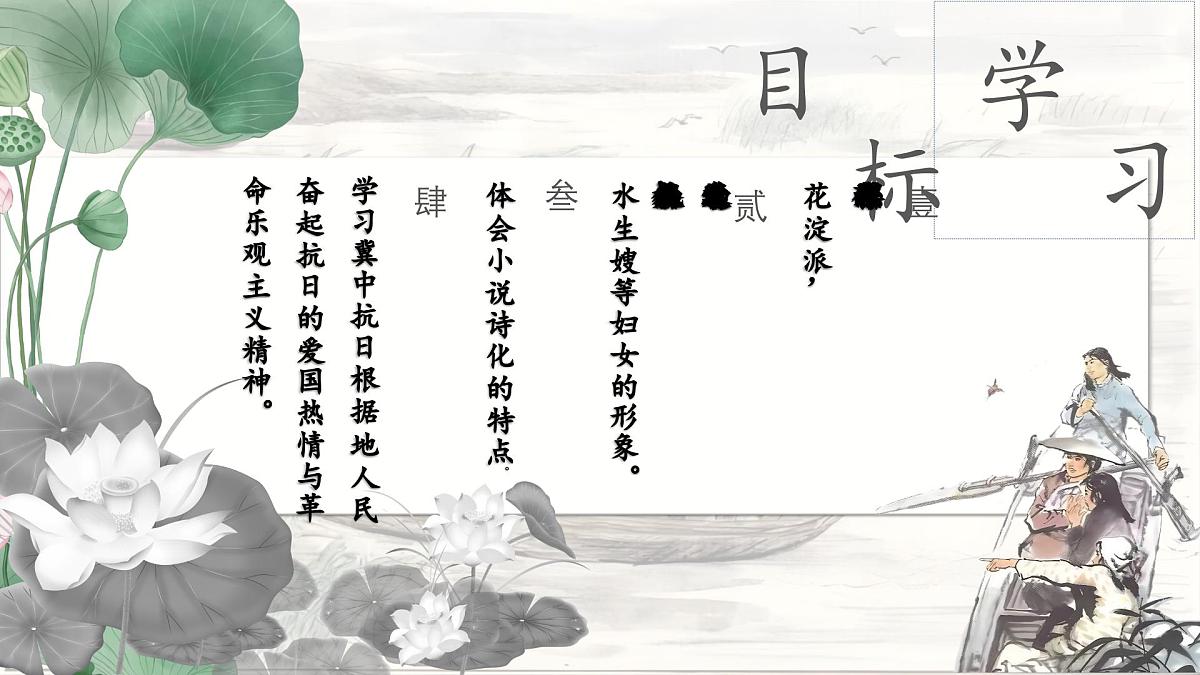 学习
目标
壹
花淀派，
贰
水生嫂等妇女的形象。
叁
体会小说诗化的特点。
肆
学习冀中抗日根据地人民
奋起抗日的爱国热情与革
命乐观主义精神。